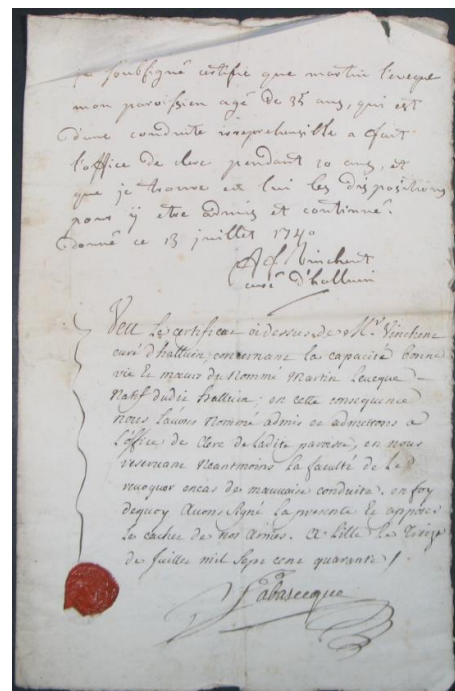 je soubsigné certifie que martin l'eveque
mon paroissien agé de 35 ans, qui est
d'une conduite irreprehensible a fait
l'office de clerc pendant 10 ans, et
que je trouve en lui les dispositions
pour ÿ etre admis et continué.
donné ce 13 juillet 1740
Vinchent
curé d'halluin
Veu le certificat cidessus de Mr. Vinchent
curé d'halluin, concernant la capacité bonne
vie et moeurs du Nommé Martin Leveque
Natif dudit halluin; en cette consequence
nous l'avons Nommé admis et admettons a
l'office de Clerc de ladite paroisse, en nous
reservant Neantmoins la faculté de le
revoquer encas de mauvaise conduite. en foy
dequoy Avons signé la presente et apposé
le cachet de nos Armes. A Lille le Treize
de Juillet mil sept cent quarante /.